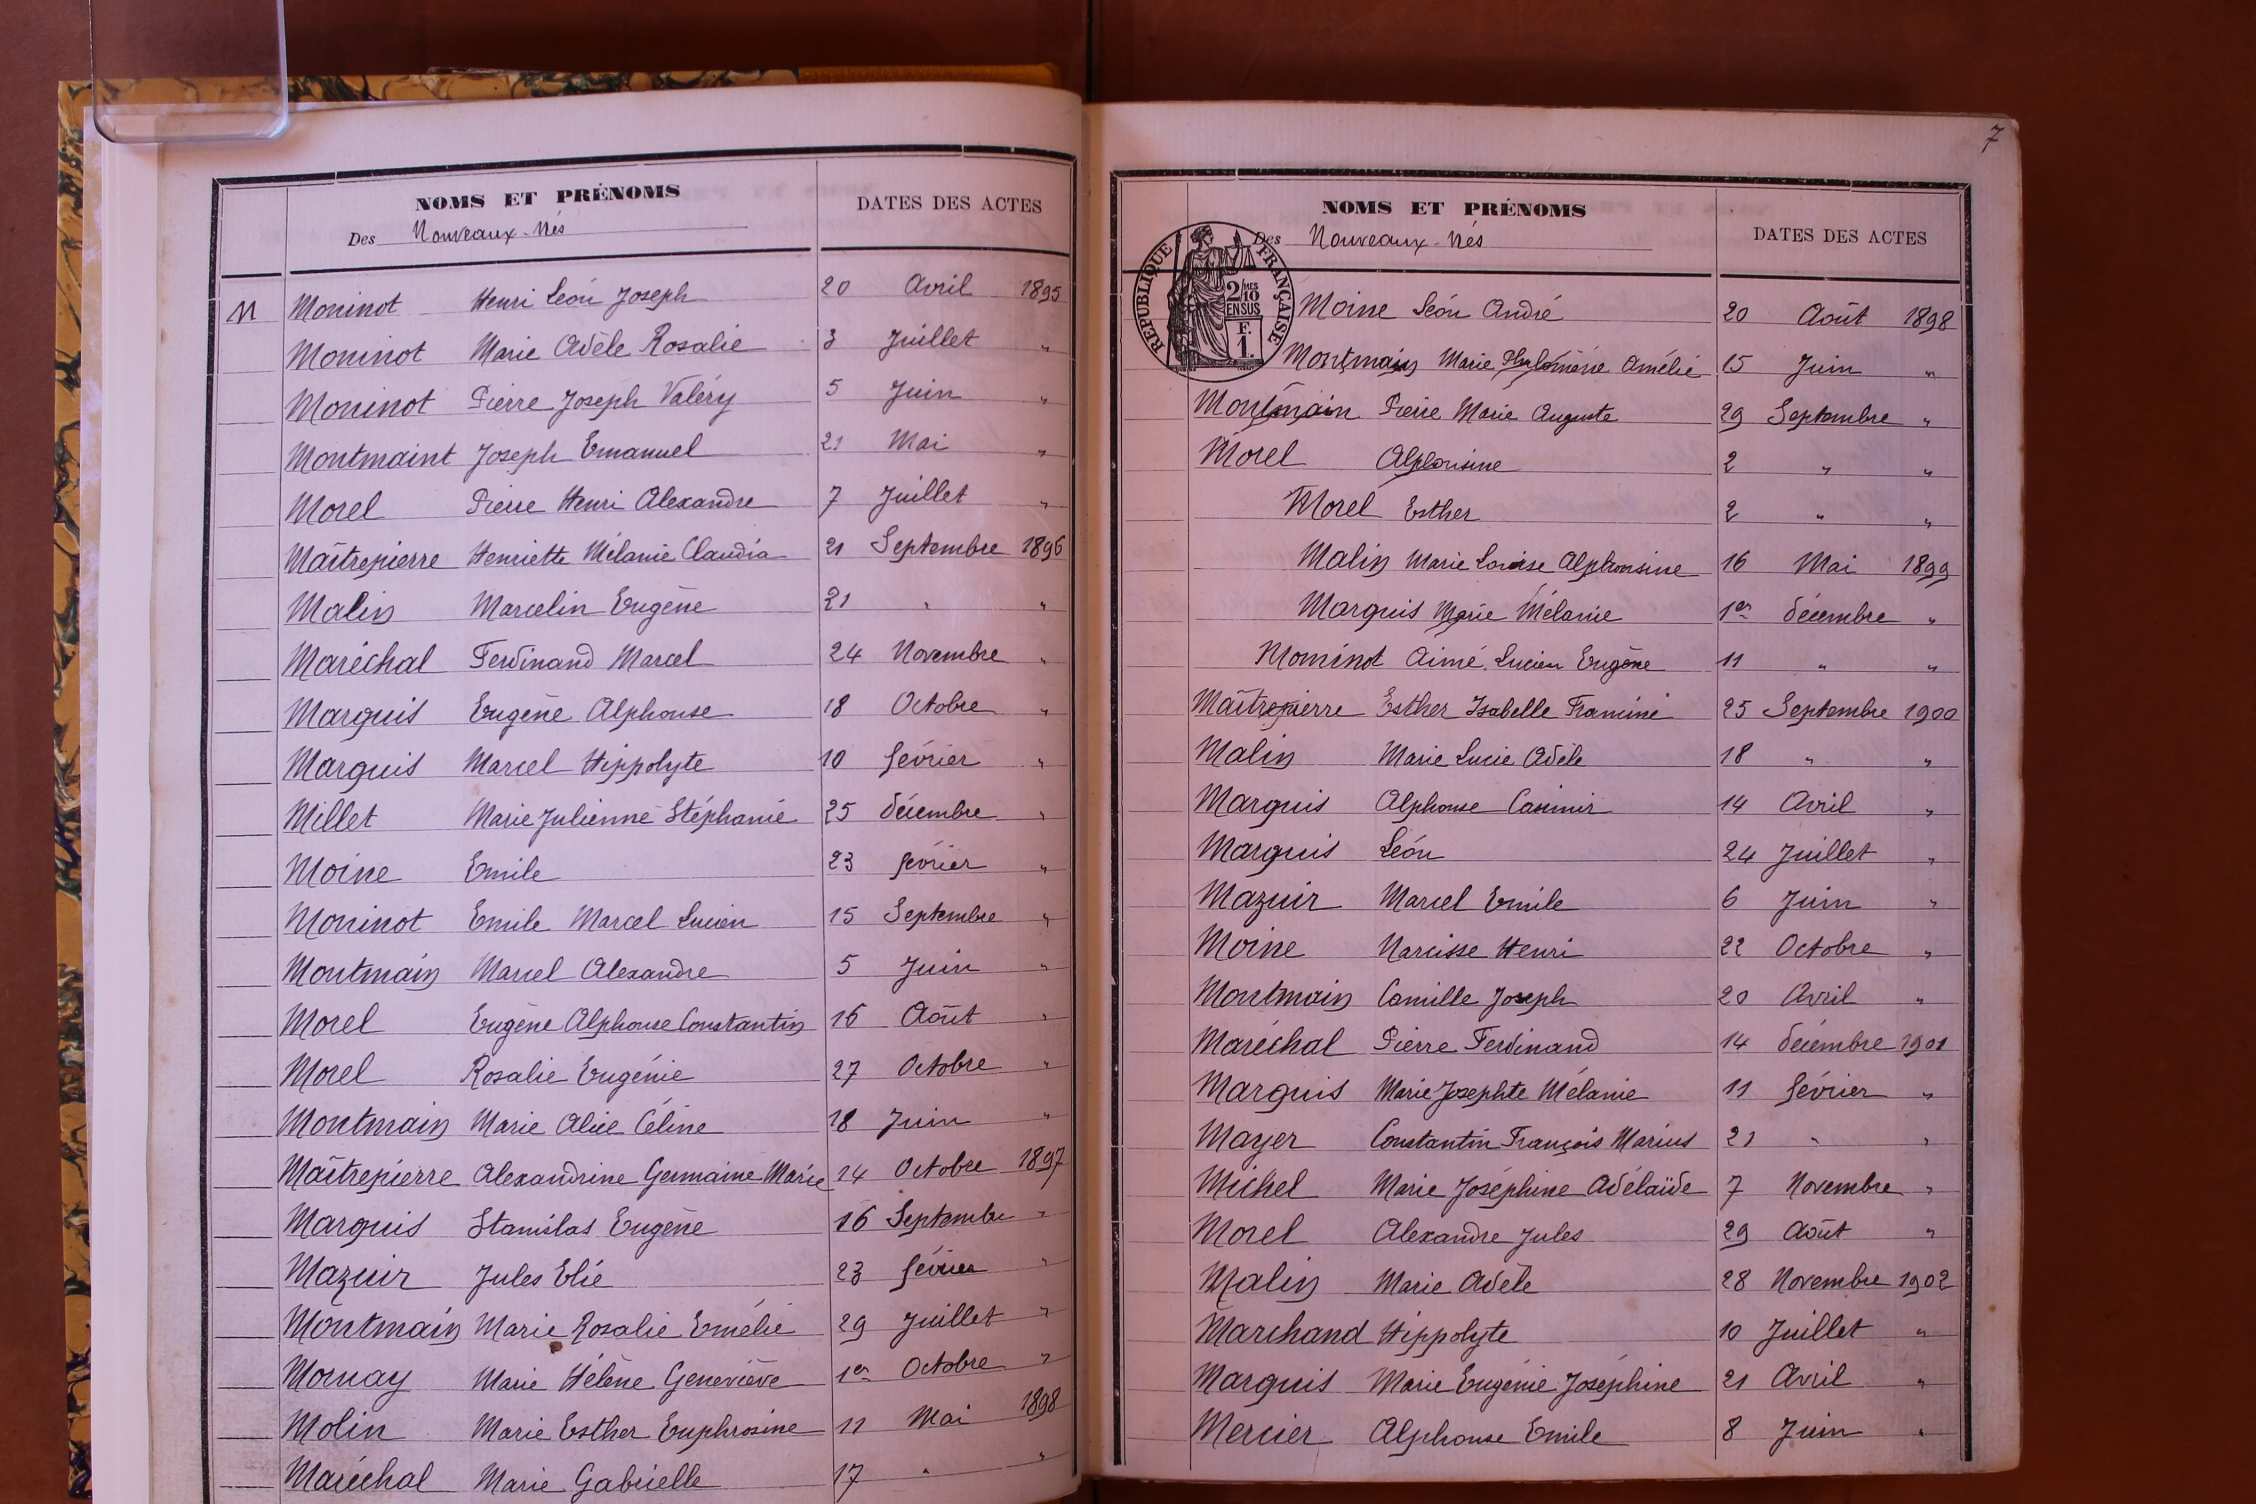 NOMS ET PRÉNOMS
DATES DES ACTES
Des Nouveaux-Nés
M Moninot Henri Léon Joseph 20 Avril 1895
Moninot Marie Adèle Rosalie 3 Juillet "
Moninot Pierre Joseph Valéry 5 Juin "
Montmaint Joseph Emanuel 21 Mai "
Morel Pierre Henri Alexandre 7 Juillet "
Maîtrepierre Henriette Mélanie Claudia 21 Septembre 1896
Malin Marcelin Eugène 21 " "
Maréchal Ferdinand Marcel 24 Novembre "
Marquis Eugène Alphonse 18 Octobre "
Marquis Marcel Hippolyte 10 février "
Millet Marie Julienne Stéphanie 25 décembre "
Moine Emile 23 février "
Moninot Emile Marcel Lucien 15 Septembre "
Montmain Marcel Alexandre 5 Juin "
Morel Eugène Alphonse Constantin 16 Août "
Morel Rosalie Eugénie 27 Octobre "
Montmain Marie Alice Céline 18 Juin "
Maîtrepierre Alexandrine Germaine Marie 14 Octobre 1897
Marquis Stanislas Eugène 16 Septembre "
Mazuir Jules Elie 23 février "
Montmain Marie Rosalie Emélie 29 Juillet "
Mornay Marie Hélène Geneviève 1er Octobre "
Molin Marie Esther Euphrosine 11 Mai 1898
Maréchal Marie Gabrielle 17 " "
7
NOMS ET PRÉNOMS
DATES DES ACTES
Des Nouveaux-Nés
RÉPUBLIQUE FRANÇAISE
2/10MES
EN SUS
F.
1.
Moine Léon André 20 Août 1898
Montmain Marie Amélie 15 Juin "
Montmain Pierre Marie Auguste 29 Septembre "
Morel Alphonsine 2 " "
Morel Esther 2 " "
Malin Marie Louise Alphonsine 16 Mai 1899
Marquis Marie Mélanie 1er décembre "
Moninot Aimé Lucien Eugène 11 " "
Maîtrepierre Esther Isabelle 25 Septembre 1900
Malin Marie Lucie Adèle 18 " "
Marquis Alphonse Casimir 14 Avril "
Marquis Léon 24 Juillet "
Mazuir Marcel Emile 6 Juin "
Moine Narcisse Henri 22 Octobre "
Montmain Camille Joseph 20 Avril "
Maréchal Pierre Ferdinand 14 décembre 1901
Marquis Marie Josephte Mélanie 11 février "
Mayer Constantin François Marius 21 " "
Michel Marie Joséphine Adélaïde 7 Novembre "
Morel Alexandre Jules 29 Août "
Malin Marie Adèle 28 Novembre 1902
Marchand Hippolyte 10 Juillet "
Marquis Marie Eugénie Joséphine 21 Avril "
Mercier Alphonse Emile 8 Juin "